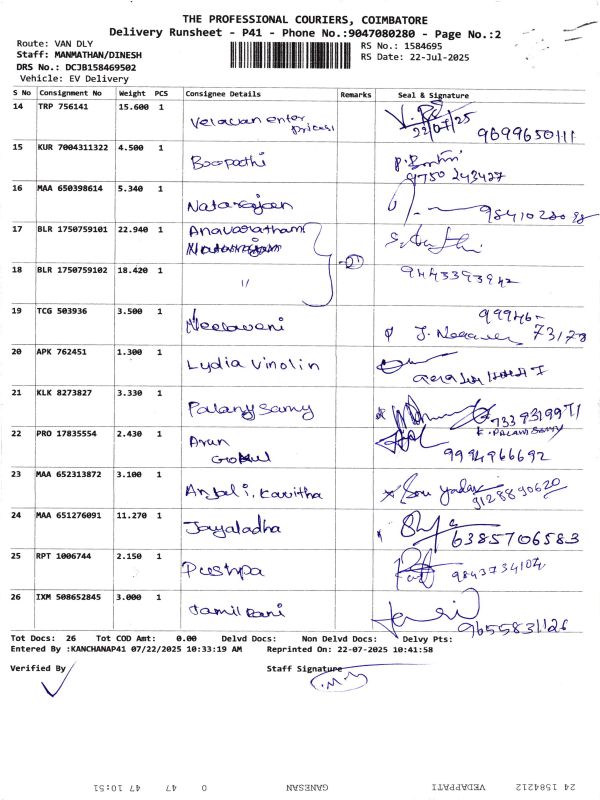 THE PROFESSIONAL COURIERS, COIMBATORE
Delivery Runsheet - P41 - Phone No.:9047080280 - Page No.:2
Route: VAN DLY
RS No.: 1584695
Staff: MANMATHAN/DINESH
RS Date: 22-Jul-2025
DRS No.: DCJB158469502
Vehicle: EV Delivery
S No Consignment No Weight PCS Consignee Details Remarks Seal & Signature
14 TRP 756141 15.600 1 Velavan enter prices 22/07/25 9699650111
15 KUR 7004311322 4.500 1 Boopathi 9750 243427
16 MAA 650398614 5.340 1 Natarajan
17 BLR 1750759101 22.940 1 Anavaratham
18 BLR 1750759102 18.420 1 11 9443393942
19 TCG 503936 3.500 1 Neelavani 99946- 73178
20 APK 762451 1.300 1 Lydia Vinolin
21 KLK 8273827 3.330 1 Palany Samy 733 9319971
E. PALANISAMY
22 PRO 17835554 2.430 1 Arun Gokul 9994966692
23 MAA 652313872 3.100 1 Anjali, Kavitha Sou yadav 9128890620
24 MAA 651276091 11.270 1 Jayaladha 6385706583
25 RPT 1006744 2.150 1 Pushpa 9843734104
26 IXM 508652845 3.000 1 Tamil Rani 9655831126
Tot Docs: 26 Tot COD Amt: 0.00 Delvd Docs: Non Delvd Docs: Delvy Pts:
Entered By :KANCHANAP41 07/22/2025 10:33:19 AM Reprinted On: 22-07-2025 10:41:58
Verified By Staff Signature
24 1584212 VEDAPPATI GANESAN 0 47 47 10:51